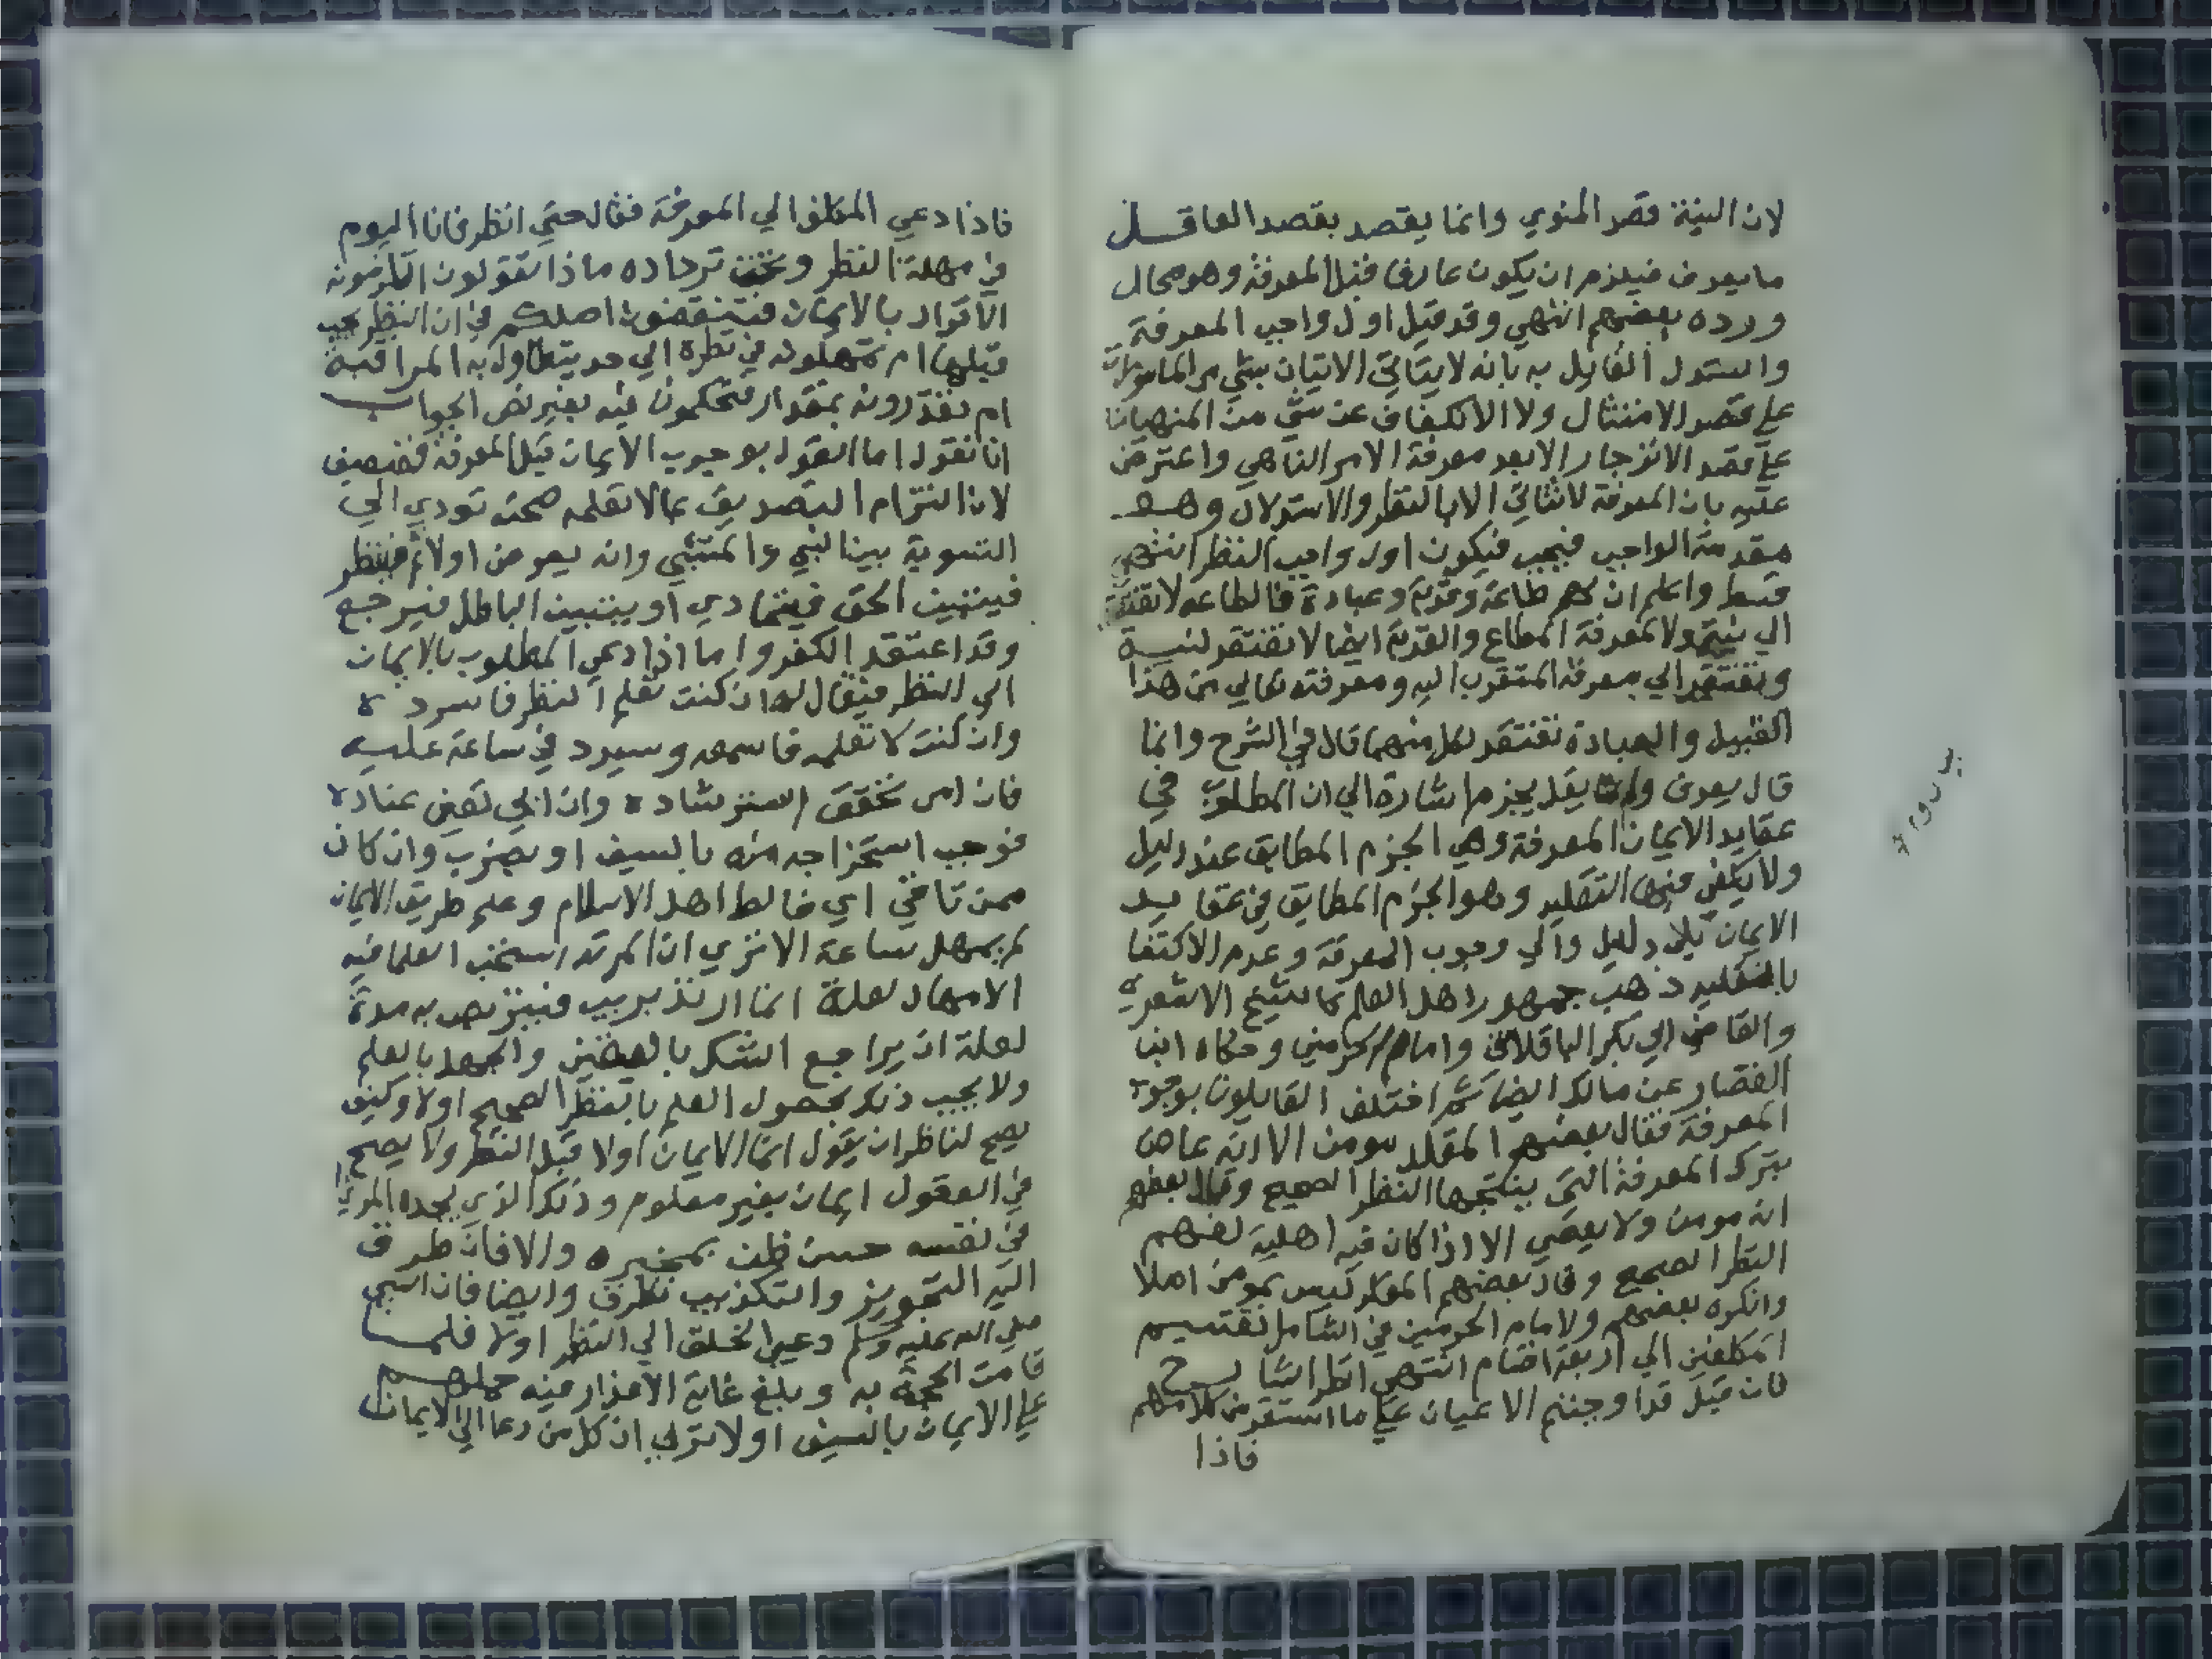 لان النية قصد المنوي وانما يقصد بقصد العاقل
ما يعرف فيلزم ان يكون عارفا قبل المعرفة وهو محال
ورده بعضهم انتهي وقد قيل اول واجب المعرفة
واستدل القايل به بانه لا يتاتي الاتيان بشي من المامورات
علي قصد الامتثال ولا الانكفاف عن شي من المنهيات
علي قصد الانزجار الا بعد معرفة الامر الناهي واعترض
عليه بان المعرفة لا تتاتي الا بالنظر والاستدلال وهو
مقدمة الواجب فيجب فيكون اول واجب النظر انتهي
واعلم ان طاعة وقربة وعبادة فالطاعه لا تفتقر
الي نية ولا لمعرفة المطاع والقربة ايضا لا تفتقر لنية
وتفتقر الي معرفة المتقرب اليه ومعرفته تعالي من هذا
القبيل والعبادة تفتقر لكل منهما قال في الشرح وانما
قال يعرف ولم يقل يجزم اشارة الي ان المطلوب في
عقايد الايمان المعرفة وهي الجزم المطابق عند دليل
ولا يكفي فيها التقليد وهو الجزم المطابق في عقايد
الايمان بلا دليل والي وجوب المعرفة وعدم الاكتفا
بالتقليد ذهب جمهور اهل العلم كالشيخ الاشعري
والقاضي ابي بكر الباقلاني وامام الحرمين وحكاه ابن
القصار عن مالك ايضا ثم اختلف القايلون بوجوب
المعرفة فقال بعضهم المقلد مومن الا انه عاص
بترك المعرفة التي ينتجها النظر الصحيح وقال بعضهم
انه مومن ولا يعصي الا اذا كان فيه اهلية لفهم
النظر الصحيح وقال بعضهم المقلد ليس بمومن اصلا
وانكره بعضهم ولامام الحرمين في الشامل تقسيم
المكلفين الي اربعة اقسام انتهي انظر الشارح
فان قيل قد اوجبتم الاعيان علي ما استقر من كلامهم
فاذا
فاذا دعي المكلف الي المعرفة فقال حتي انظر فانا اليوم
في مهلة النظر وتحت ترداده ماذا تقولون اتلزمونه
الاقرار بالايمان فتنقضون اصلكم في ان النظر يجب
قبلها ام تمهلونه في نظره الي حد يتطاول به المراقبة
ام تقدرونه بمقدار فتحكمون فيه بغير نص الجواب
انا نقول اما القول بوجوب الايمان قبل المعرفة فضعيف
لان التزام التصديق بما لا تعلم صحته تودي الي
التسوية بين النبي والمتنبي وانه يومن اولا ثم ينظر
فيتبين الحق فيتمادي او يتبين الباطل فيرجع
وقد اعتقد الكفر واما اذا دعي المطلوب بالايمان
الي النظر فيقال له ان كنت تعلم النظر فاسرده
وان كنت لا تعلمه فاسمعه وسيرد في ساعة عليه
فان امن تحقق استرشاده وان ابي تعين عناده
فوجب استخراجه منه بالسيف او يضرب وان كان
ممن ثافن اي خالط اهل الاسلام وعلم طريق الايمان
لم يمهل ساعة الا تري ان المرتد استحب العلما فيه
الامهال لعله انما ارتد بريب فيتربص به مدة
لعله ان يراجع الشك باليقين والجهل بالعلم
ولا يجب ذلك بحصول العلم بالنظر الصحيح اولا وكيف
يصح لناظر ان يقول انما الايمان اولا قبل النظر ولا يصح
في العقول ايمان بغير معلوم وذلك الذي يجده المرء
في نفسه حسن ظن بمخبره والا فان طرق
اليه التجويز والتكذيب تطرق وايضا فان النبي
صلي الله عليه وسلم دعي الخلق الي النظر اولا فلما
قامت الحجة به وبلغ غاية الاعذار فيه حملهم
علي الايمان بالسيف اولا تري ان كل من دعا الي الايمان